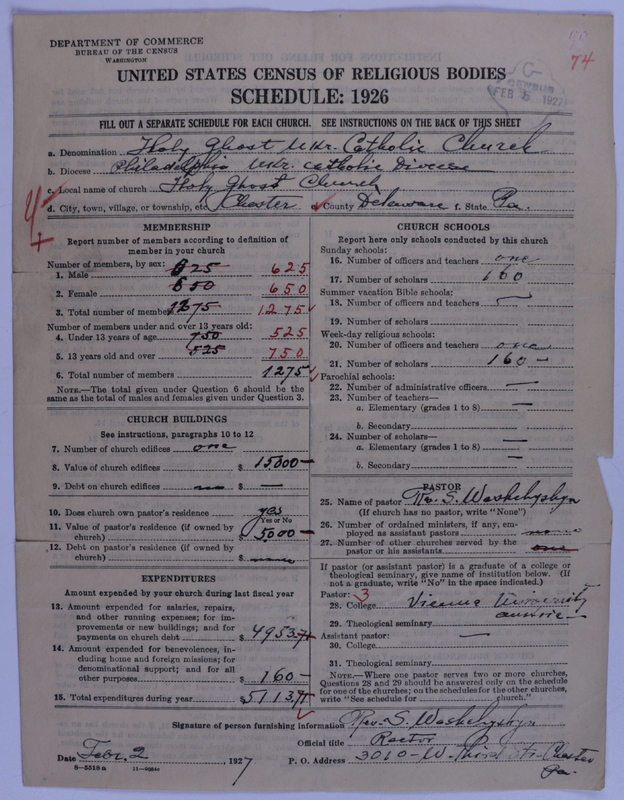 DEPARTMENT OF COMMERCE
BUREAU OF THE CENSUS
WASHINGTON
74
UNITED STATES CENSUS OF RELIGIOUS BODIES
SCHEDULE: 1926
FEB 5 1927
FILL OUT A SEPARATE SCHEDULE FOR EACH CHURCH. SEE INSTRUCTIONS ON THE BACK OF THIS SHEET
a. Denomination Holy Ghost Ukr. Catholic Church
b. Diocese Philadelphia Ukr. Catholic Diocese
c. Local name of church Holy Ghost Church
d. City, town, village, or township, etc. Chester e. County Delaware f. State Pa.
MEMBERSHIP
Report number of members according to definition of
member in your church
Number of members, by sex:
1. Male 625 625
2. Female 650 650
3. Total number of members 1275 1275
Number of members under and over 13 years old:
4. Under 13 years of age 750 525
5. 13 years old and over 525 750
6. Total number of members 1275
NOTE.—The total given under Question 6 should be
same as the total of males and females given under Question 3.
CHURCH BUILDINGS
See instructions, paragraphs 10 to 12
7. Number of church edifices one
8. Value of church edifices $ 15000—
9. Debt on church edifices no $ —
10. Does church own pastor's residence? yes
Yes or No
11. Value of pastor's residence (if owned by
church) $ 5000—
12. Debt on pastor's residence (if owned by
church) $ none
EXPENDITURES
Amount expended by your church during last fiscal year
13. Amount expended for salaries, repairs,
and other running expenses; for im-
provements or new buildings; and for
payments on church debt $ 4953.71
14. Amount expended for benevolences, in-
cluding home and foreign missions; for
denominational support; and for all
other purposes $ 160—
15. Total expenditures during year $ 5113.71
CHURCH SCHOOLS
Report here only schools conducted by this church
Sunday schools:
16. Number of officers and teachers one
17. Number of scholars 160
Summer vacation Bible schools:
18. Number of officers and teachers —
19. Number of scholars
Week-day religious schools:
20. Number of officers and teachers one
21. Number of scholars 160—
Parochial schools:
22. Number of administrative officers —
23. Number of teachers—
a. Elementary (grades 1 to 8) —
b. Secondary
24. Number of scholars—
a. Elementary (grades 1 to 8) —
b. Secondary —
PASTOR
25. Name of pastor Rev. S.
(If church has no pastor, write "None")
26. Number of ordained ministers, if any, em-
ployed as assistant pastors none
27. Number of other churches served by the
pastor or his assistants one
If pastor (or assistant pastor) is a graduate of a college or
theological seminary, give name of institution below. (If
not a graduate, write "No" in the space indicated.)
Pastor: 3
28. College Vienna University
Austria
29. Theological seminary
Assistant pastor: —
30. College
31. Theological seminary
NOTE.—Where one pastor serves two or more churches,
Questions 28 and 29 should be answered only on the schedule
for one of the churches; on the schedules for the other churches,
write "See schedule for church."
Signature of person furnishing information Rev. S.
Official title Rector
Date Feb. 2, 1927 P. O. Address 3010-W. Third Str. Chester
Pa.
8—5518a 11—9984a